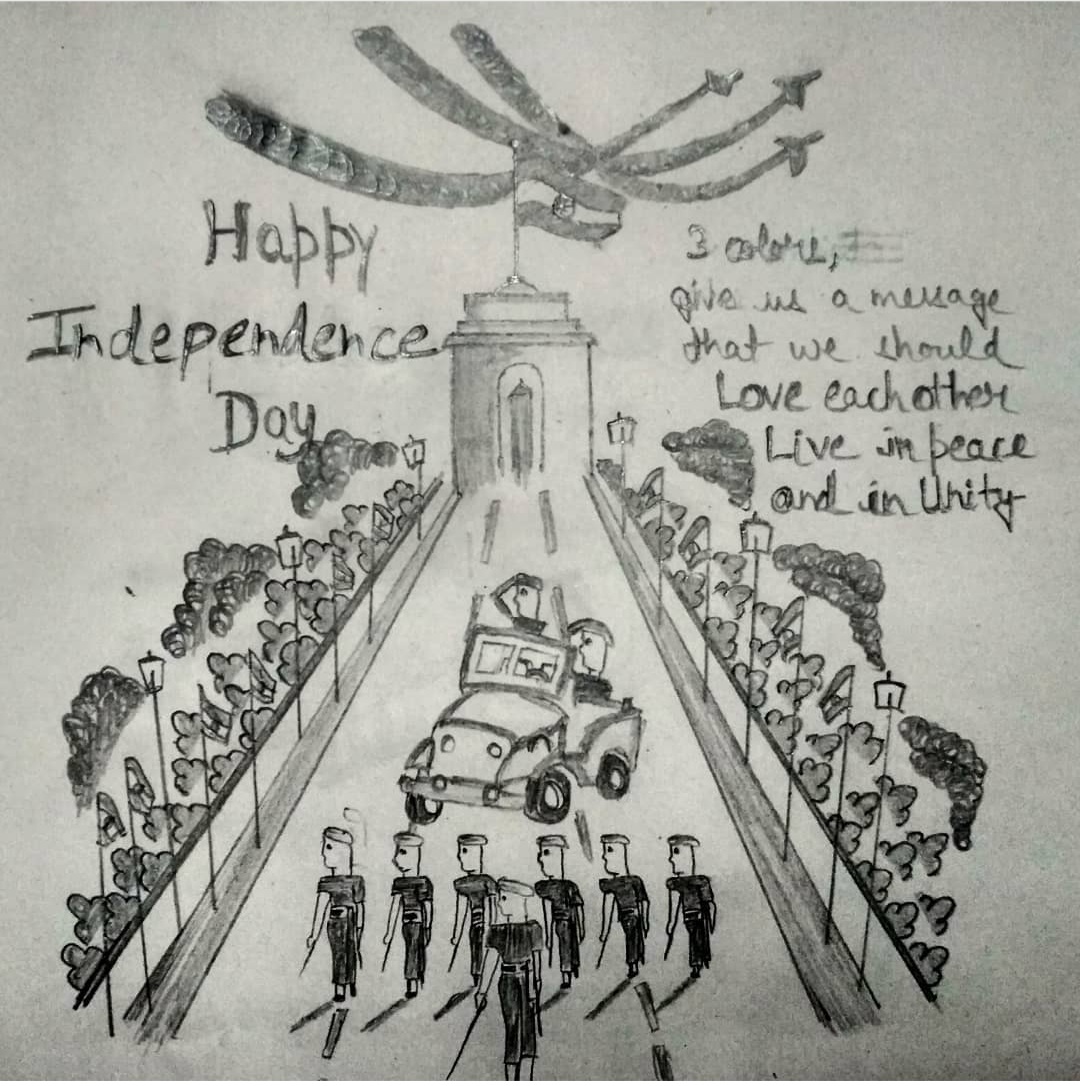 Happy
Independence
Day
3 colors,
give us a message
that we should
Love eachother
Live in peace
and in Unity